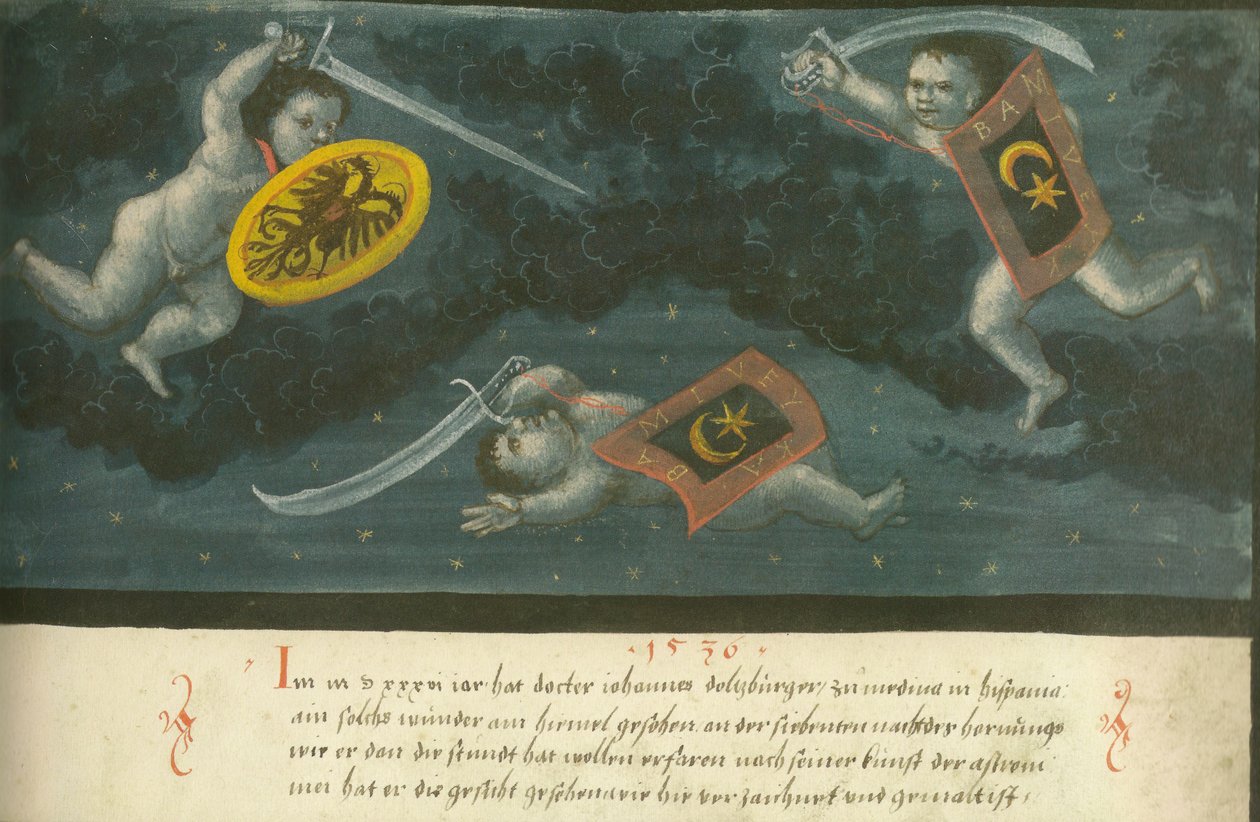 BAMIVEY
BAMIVEYKA
·1536·
Im m d xxxvi iar hat docter iohannes doltzbúrger / zú medina in hispania
ain solchs wúnder am hiemel gesehen an der siebenten nacht des hornúngs
wie er dan die stúndt hat wollen erfaren nach seiner kúnst der astroni
mei hat er die gesicht gesehen wie hie ver zaichnet vnd gemalt ist /